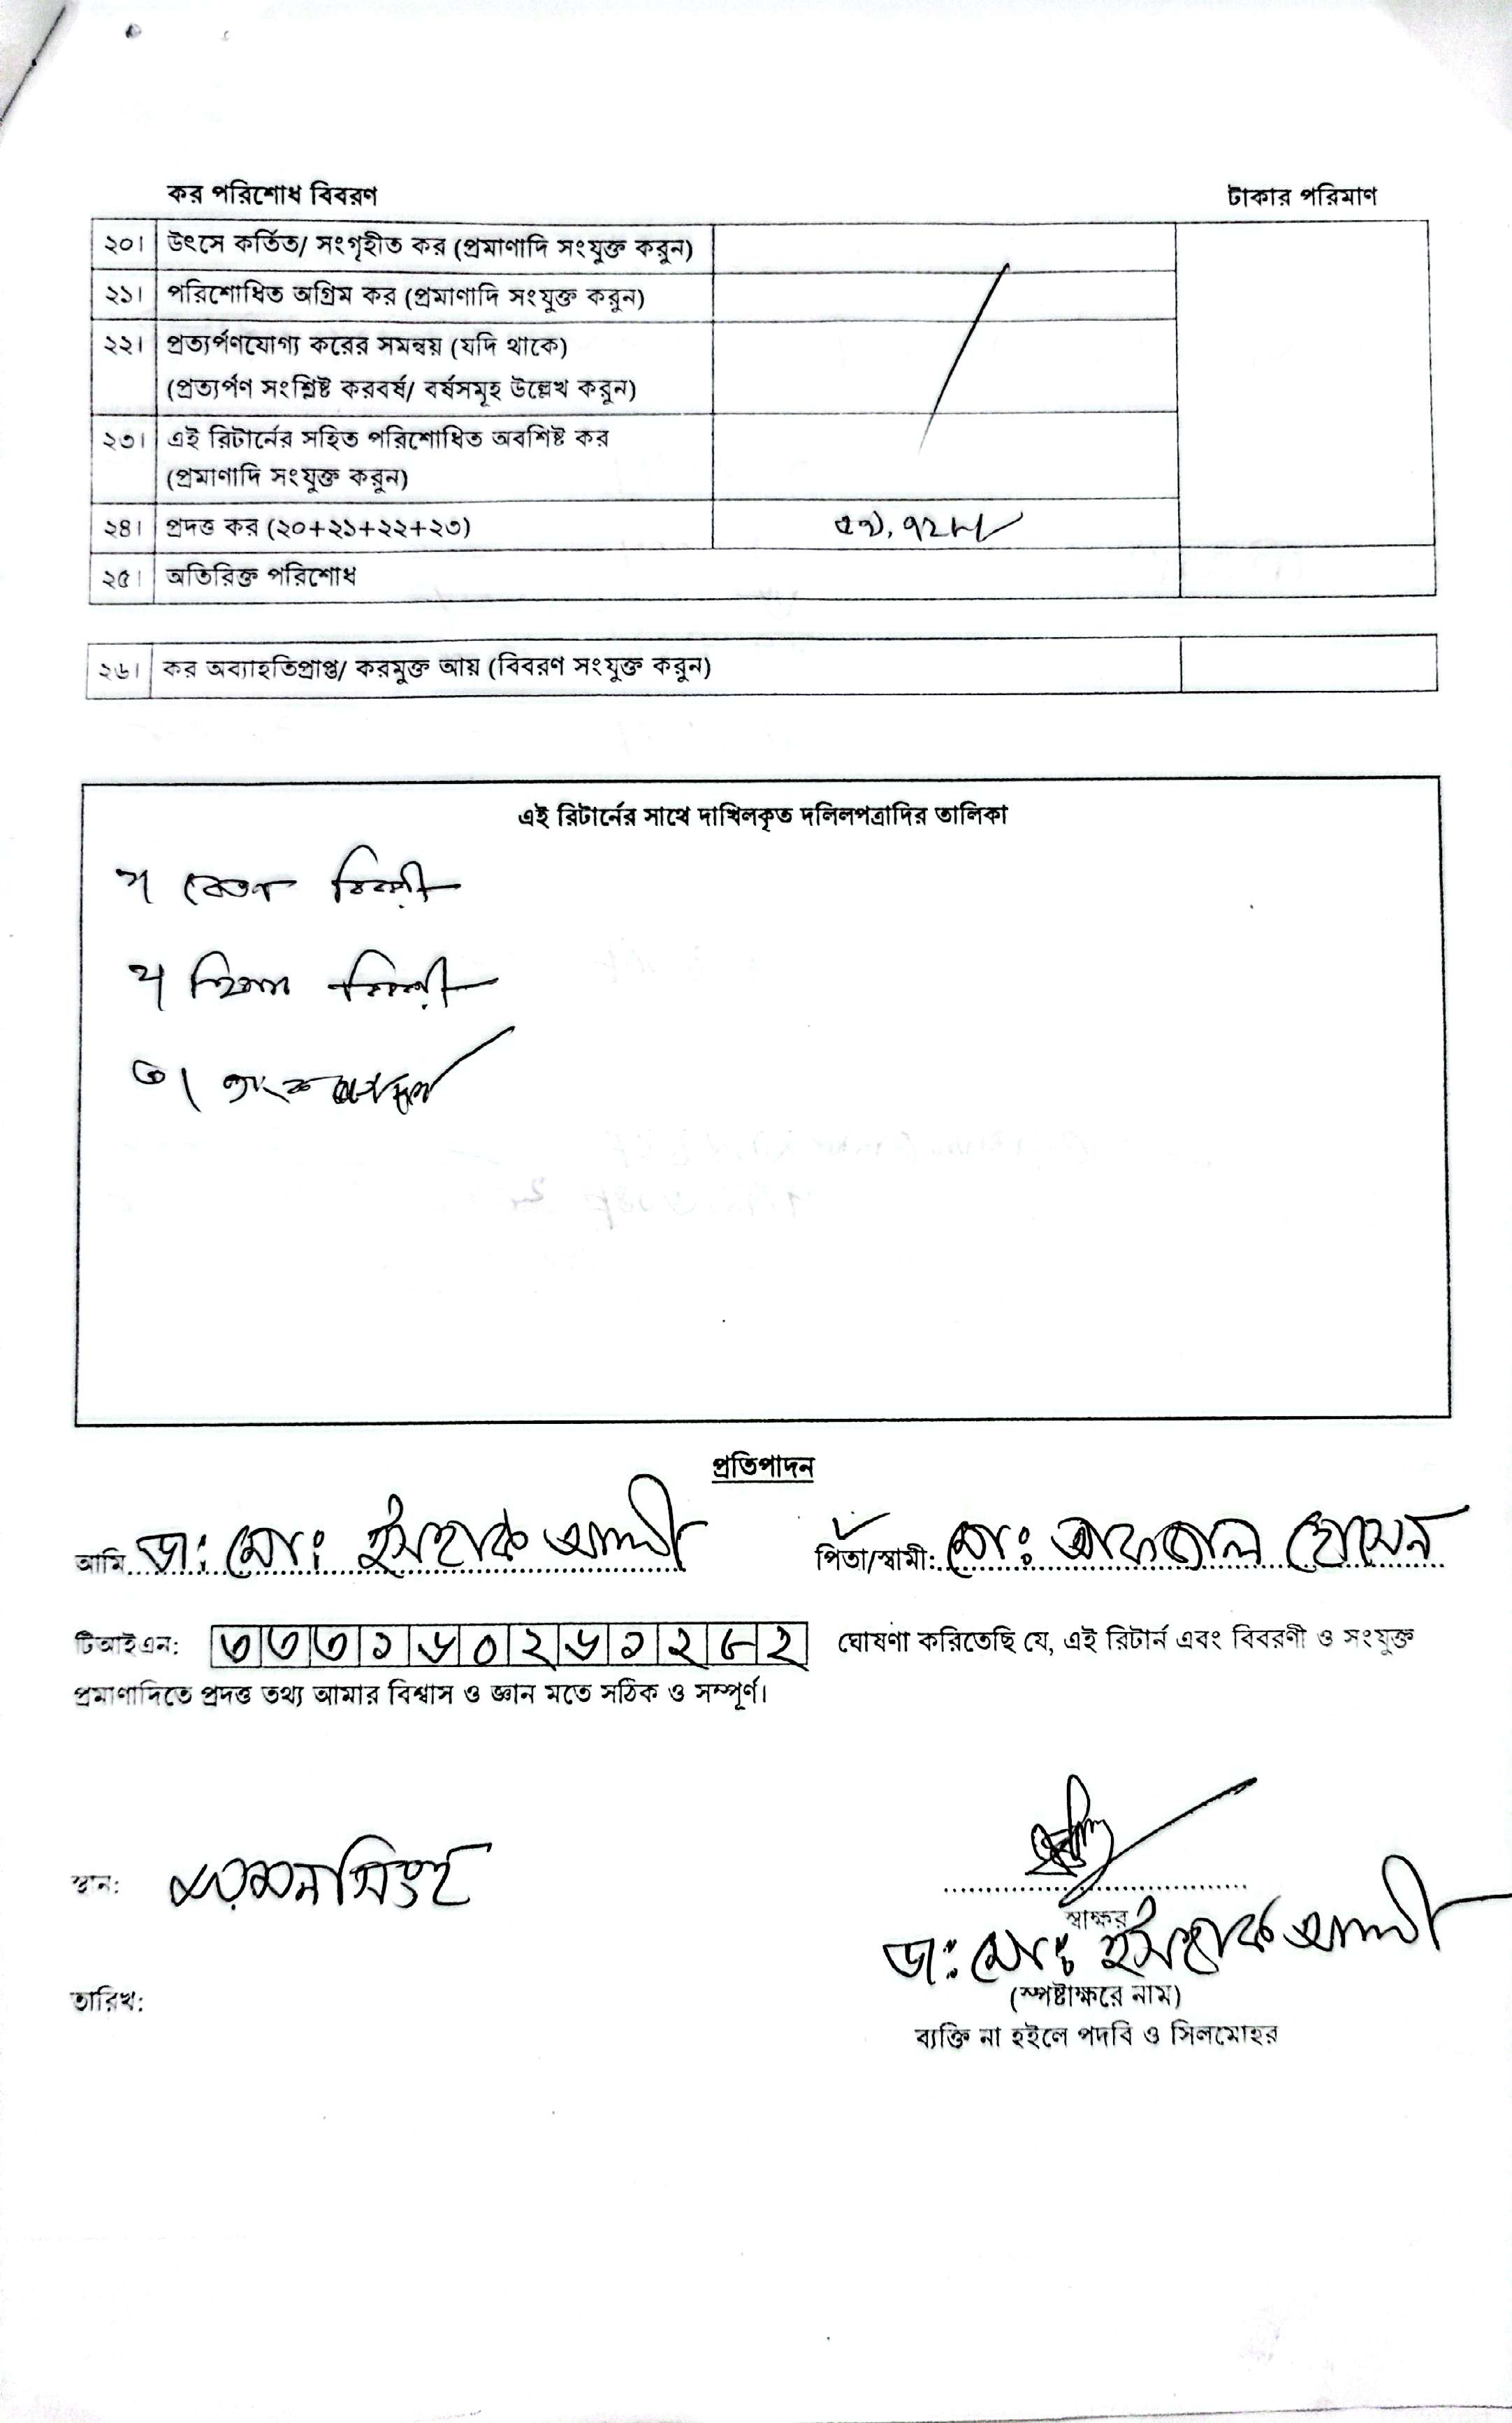 কর পরিশোধ বিবরণ টাকার পরিমাণ
২০। উৎসে কর্তিত/ সংগৃহীত কর (প্রমাণাদি সংযুক্ত করুন)
২১। পরিশোধিত অগ্রিম কর (প্রমাণাদি সংযুক্ত করুন)
২২। প্রত্যর্পণযোগ্য করের সমন্বয় (যদি থাকে)
(প্রত্যর্পণ সংশ্লিষ্ট করবর্ষ/ বর্ষসমূহ উল্লেখ করুন)
২৩। এই রিটার্নের সহিত পরিশোধিত অবশিষ্ট কর
(প্রমাণাদি সংযুক্ত করুন)
২৪। প্রদত্ত কর (২০+২১+২২+২৩)
২৫। অতিরিক্ত পরিশোধ
২৬। কর অব্যাহতিপ্রাপ্ত/ করমুক্ত আয় (বিবরণ সংযুক্ত করুন)
এই রিটার্নের সাথে দাখিলকৃত দলিলপত্রাদির তালিকা
১। বেতন বিবরণী
২। হিসাব বিবরণী
৩।
প্রতিপাদন
আমি ডা: মো: ইসহাক আলী পিতা/স্বামী: মো: আফজাল হোসেন
টিআইএন: ৩৩৩১৬০২৬১২৮২ ঘোষণা করিতেছি যে, এই রিটার্ন এবং বিবরণী ও সংযুক্ত
প্রমাণাদিতে প্রদত্ত তথ্য আমার বিশ্বাস ও জ্ঞান মতে সঠিক ও সম্পূর্ণ।
স্থান: ময়মনসিংহ
স্বাক্ষর
ডা: মো: ইসহাক আলী
তারিখ: (স্পষ্টাক্ষরে নাম)
ব্যক্তি না হইলে পদবি ও সিলমোহর